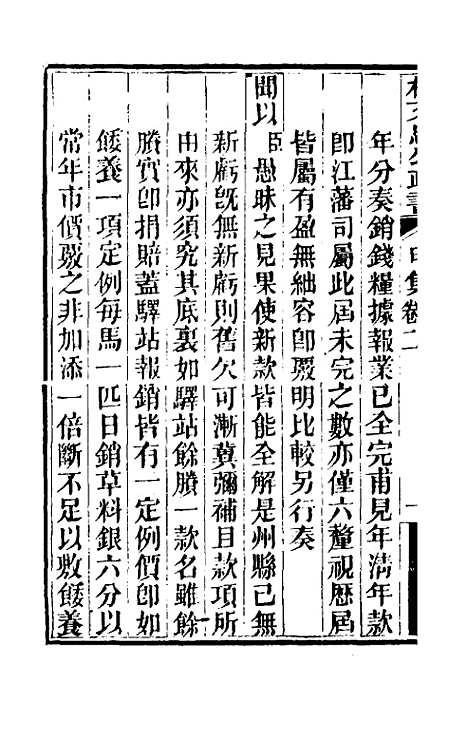 林文忠公政書　甲集卷二
年分奏銷錢糧據報業已全完甫見年清年款
卽江藩司屬此屆未完之數亦僅六釐視歷屆
皆屬有盈無絀容卽覈明比較另行奏
聞以臣愚昧之見果使新款皆能全解是州縣已無
新虧旣無新虧則舊欠可漸冀彌補且款項所
由來亦須究其底裏如驛站餘賸一款名雖餘
賸實卽捐賠蓋驛站報銷皆有一定例價卽如
餧養一項定例每馬一匹日銷草料銀六分以
常年市價覈之非加添一倍斷不足以敷餧養